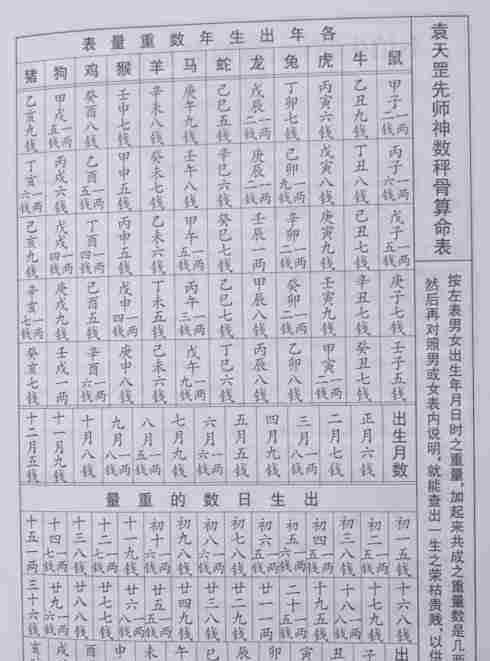 袁天罡先师神数秤骨算命表
按左表男女出生年月日时之重量,加起来共成之重量数是几两
然后再对照男或女表内说明,就能查出一生之荣枯贵贱,以供
各年出生年数重量表
鼠 牛 虎 兔 龙 蛇 马 羊 猴 鸡 狗 猪
甲子一两二钱 乙丑九钱 丙寅六钱 丁卯七钱 戊辰一两二钱 己巳五钱 庚午九钱 辛未八钱 壬申七钱 癸酉八钱 甲戌一两五钱 乙亥九钱
丙子一两六钱 丁丑八钱 戊寅八钱 己卯一两九钱 庚辰一两二钱 辛巳六钱 壬午八钱 癸未七钱 甲申五钱 乙酉一两五钱 丙戌六钱 丁亥一两六钱
戊子一两五钱 己丑七钱 庚寅九钱 辛卯一两二钱 壬辰一两 癸巳七钱 甲午一两五钱 乙未六钱 丙申五钱 丁酉一两四钱 戊戌一两四钱 己亥九钱
庚子七钱 辛丑七钱 壬寅九钱 癸卯一两二钱 甲辰八钱 乙巳七钱 丙午一两三钱 丁未五钱 戊申一两四钱 己酉五钱 庚戌九钱 辛亥一两七钱
壬子五钱 癸丑七钱 甲寅一两二钱 乙卯八钱 丙辰八钱 丁巳六钱 戊午一两九钱 己未六钱 庚申八钱 辛酉一两六钱 壬戌一两 癸亥七钱
出生月数 正月六钱 二月七钱 三月一两八钱 四月九钱 五月五钱 六月一两六钱 七月九钱 八月一两五钱 九月一两八钱 十月八钱 十一月九钱 十二月五钱
出生日数的重量
初一五钱 初二一两五钱 初三八钱 初四一两五钱 初五一两六钱 初六一两五钱 初七八钱 初八一两六钱 初九八钱 初十一两六钱 十一九钱 十二一两七钱 十三八钱 十四一两七钱 十五一两
十六八钱 十七九钱 十八一两八钱 十九五钱 二十一两五钱 廿一一两 廿二九钱 廿三八钱 廿四九钱 廿五一两五钱 廿六一两八钱 廿七七钱 廿八八钱 廿九一两六钱 三十六钱
出 子 丑 寅 卯 辰 巳 午 未 申 酉 戌 亥